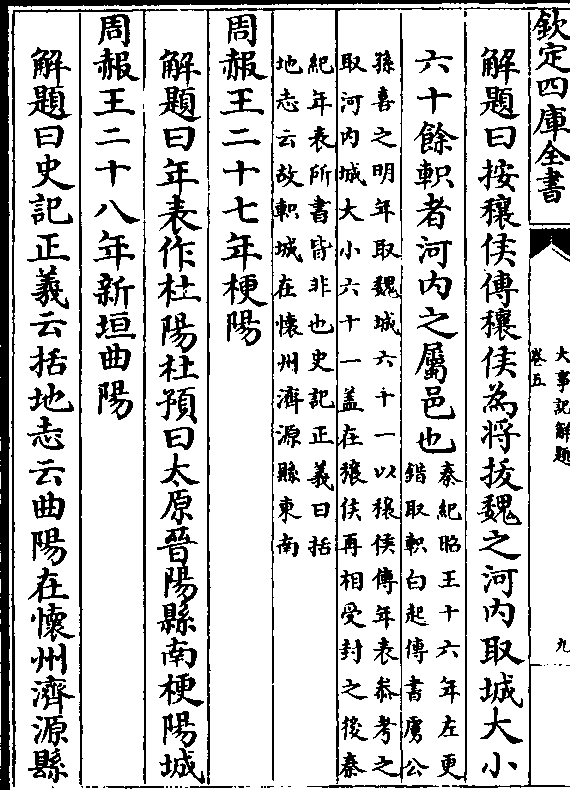 欽定四庫全書
大事記解題
卷五
九
解題曰按穰侯傳穰侯為將拔魏之河内取城大小
六十餘軹者河内之屬邑也
秦紀昭王十六年左更
錯取軹白起傳書虜公
孫喜之明年取魏城六十一以穰侯傳年表叅考之
取河内城大小六十一盖在穰侯再相受封之後秦
紀年表所書皆非也史記正義曰括
地志云故軹城在懷州濟源縣東南
周赧王二十七年梗陽
解題曰年表作杜陽杜預曰太原晉陽縣南梗陽城
周赧王二十八年新垣曲陽
解題曰史記正義云括地志云曲陽在懷州濟源縣